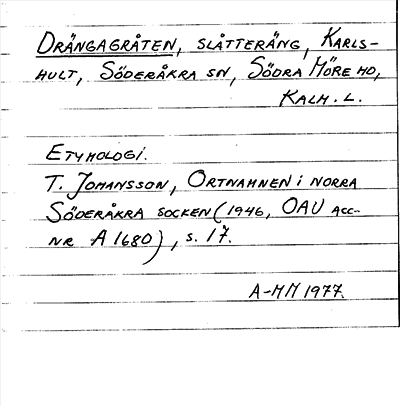 DRÄNGAGRÅTEN, SLÅTTERÄNG, KARLS-
HULT, SÖDERÅKRA SN, SÖDRA MÖRE HD,
KALM. L.
ETYMOLOGI.
T. JOHANSSON, ORTNAMNEN I NORRA
SÖDERÅKRA SOCKEN (1946, OAU ACC-
NR A 1680), S. 17.
A-MM 1977.